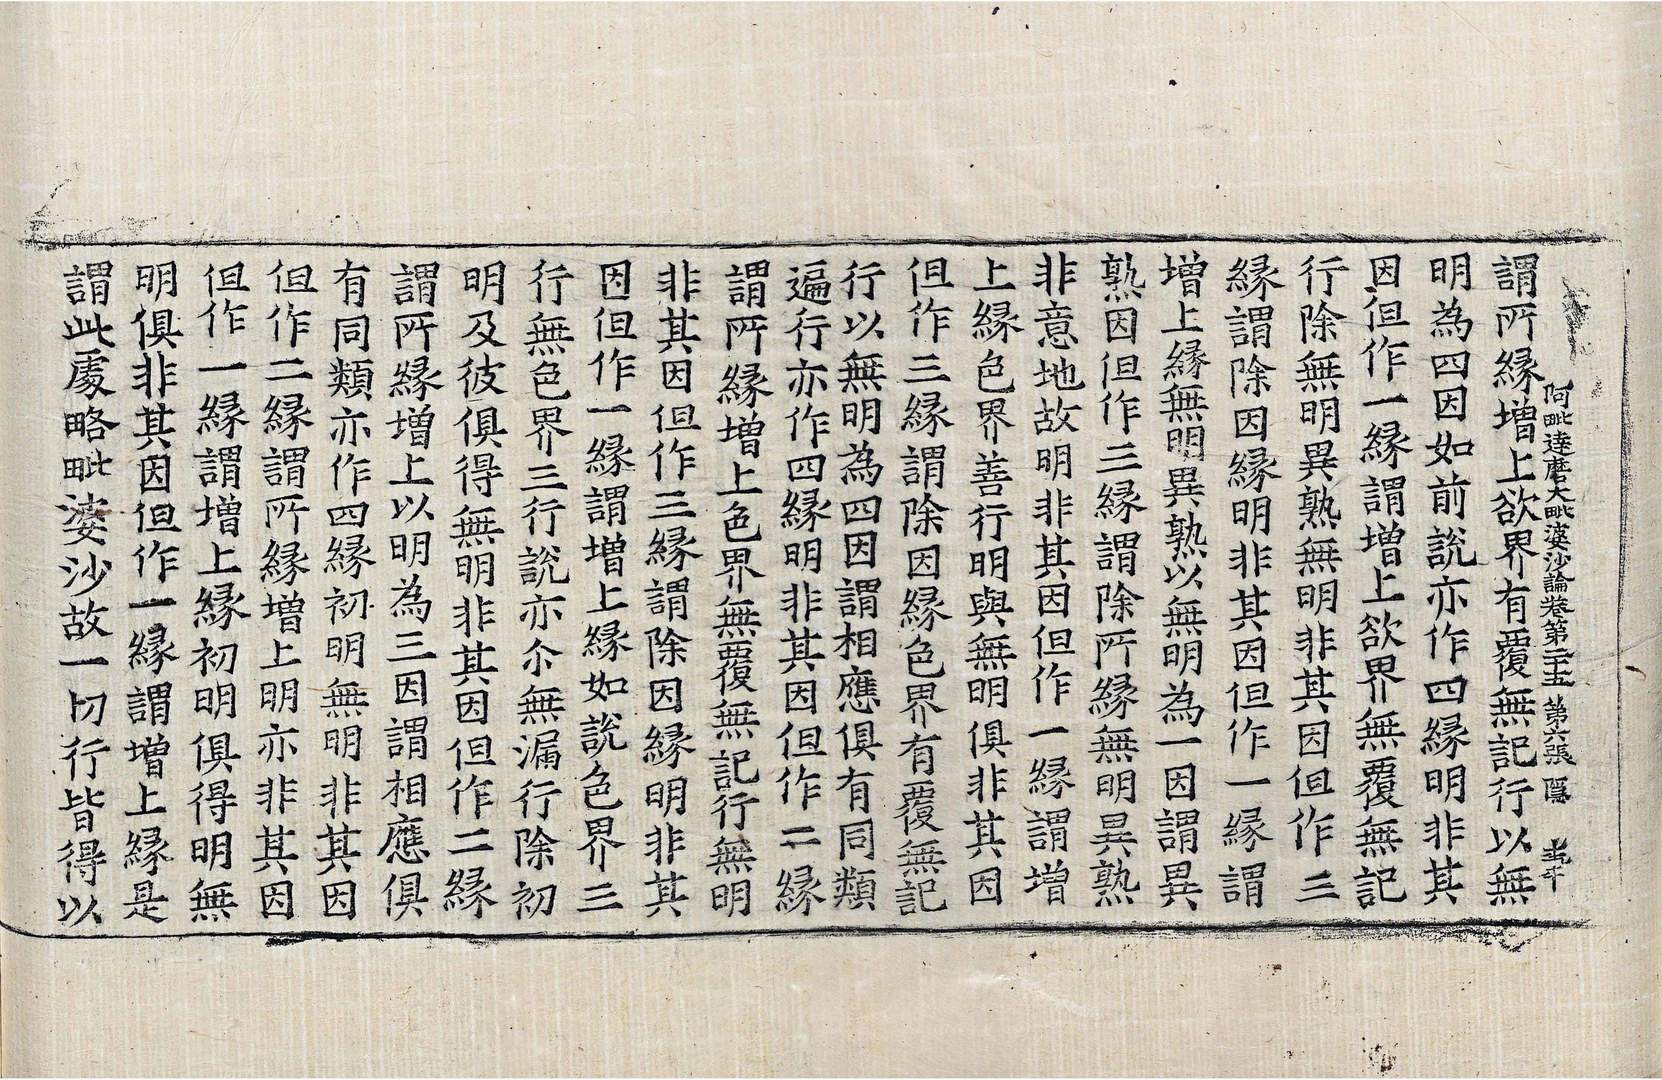 阿毗達磨大毗婆沙論卷第二十五 第六張 隱
謂所緣增上欲界有覆無記行以無
明為四因如前說亦作四緣明非其
因但作一緣謂增上欲界無覆無記
行除無明異熟無明非其因但作三
緣謂除因緣明非其因但作一緣謂
增上緣無明異熟以無明為一因謂異
熟因但作三緣謂除所緣無明異熟
非意地故明非其因但作一緣謂增
上緣色界善行明與無明俱非其因
但作三緣謂除因緣色界有覆無記
行以無明為四因謂相應俱有同類
遍行亦作四緣明非其因但作二緣
謂所緣增上色界無覆無記行無明
非其因但作三緣謂除因緣明非其
因但作一緣謂增上緣如說色界三
行無色界三行說亦尒無漏行除初
明及彼俱得無明非其因但作二緣
謂所緣增上以明為三因謂相應俱
有同類亦作四緣初明無明非其因
但作二緣謂所緣增上明亦非其因
但作一緣謂增上緣初明俱得明無
明俱非其因但作一緣謂增上緣是
謂此處略毗婆沙故一切行皆得以